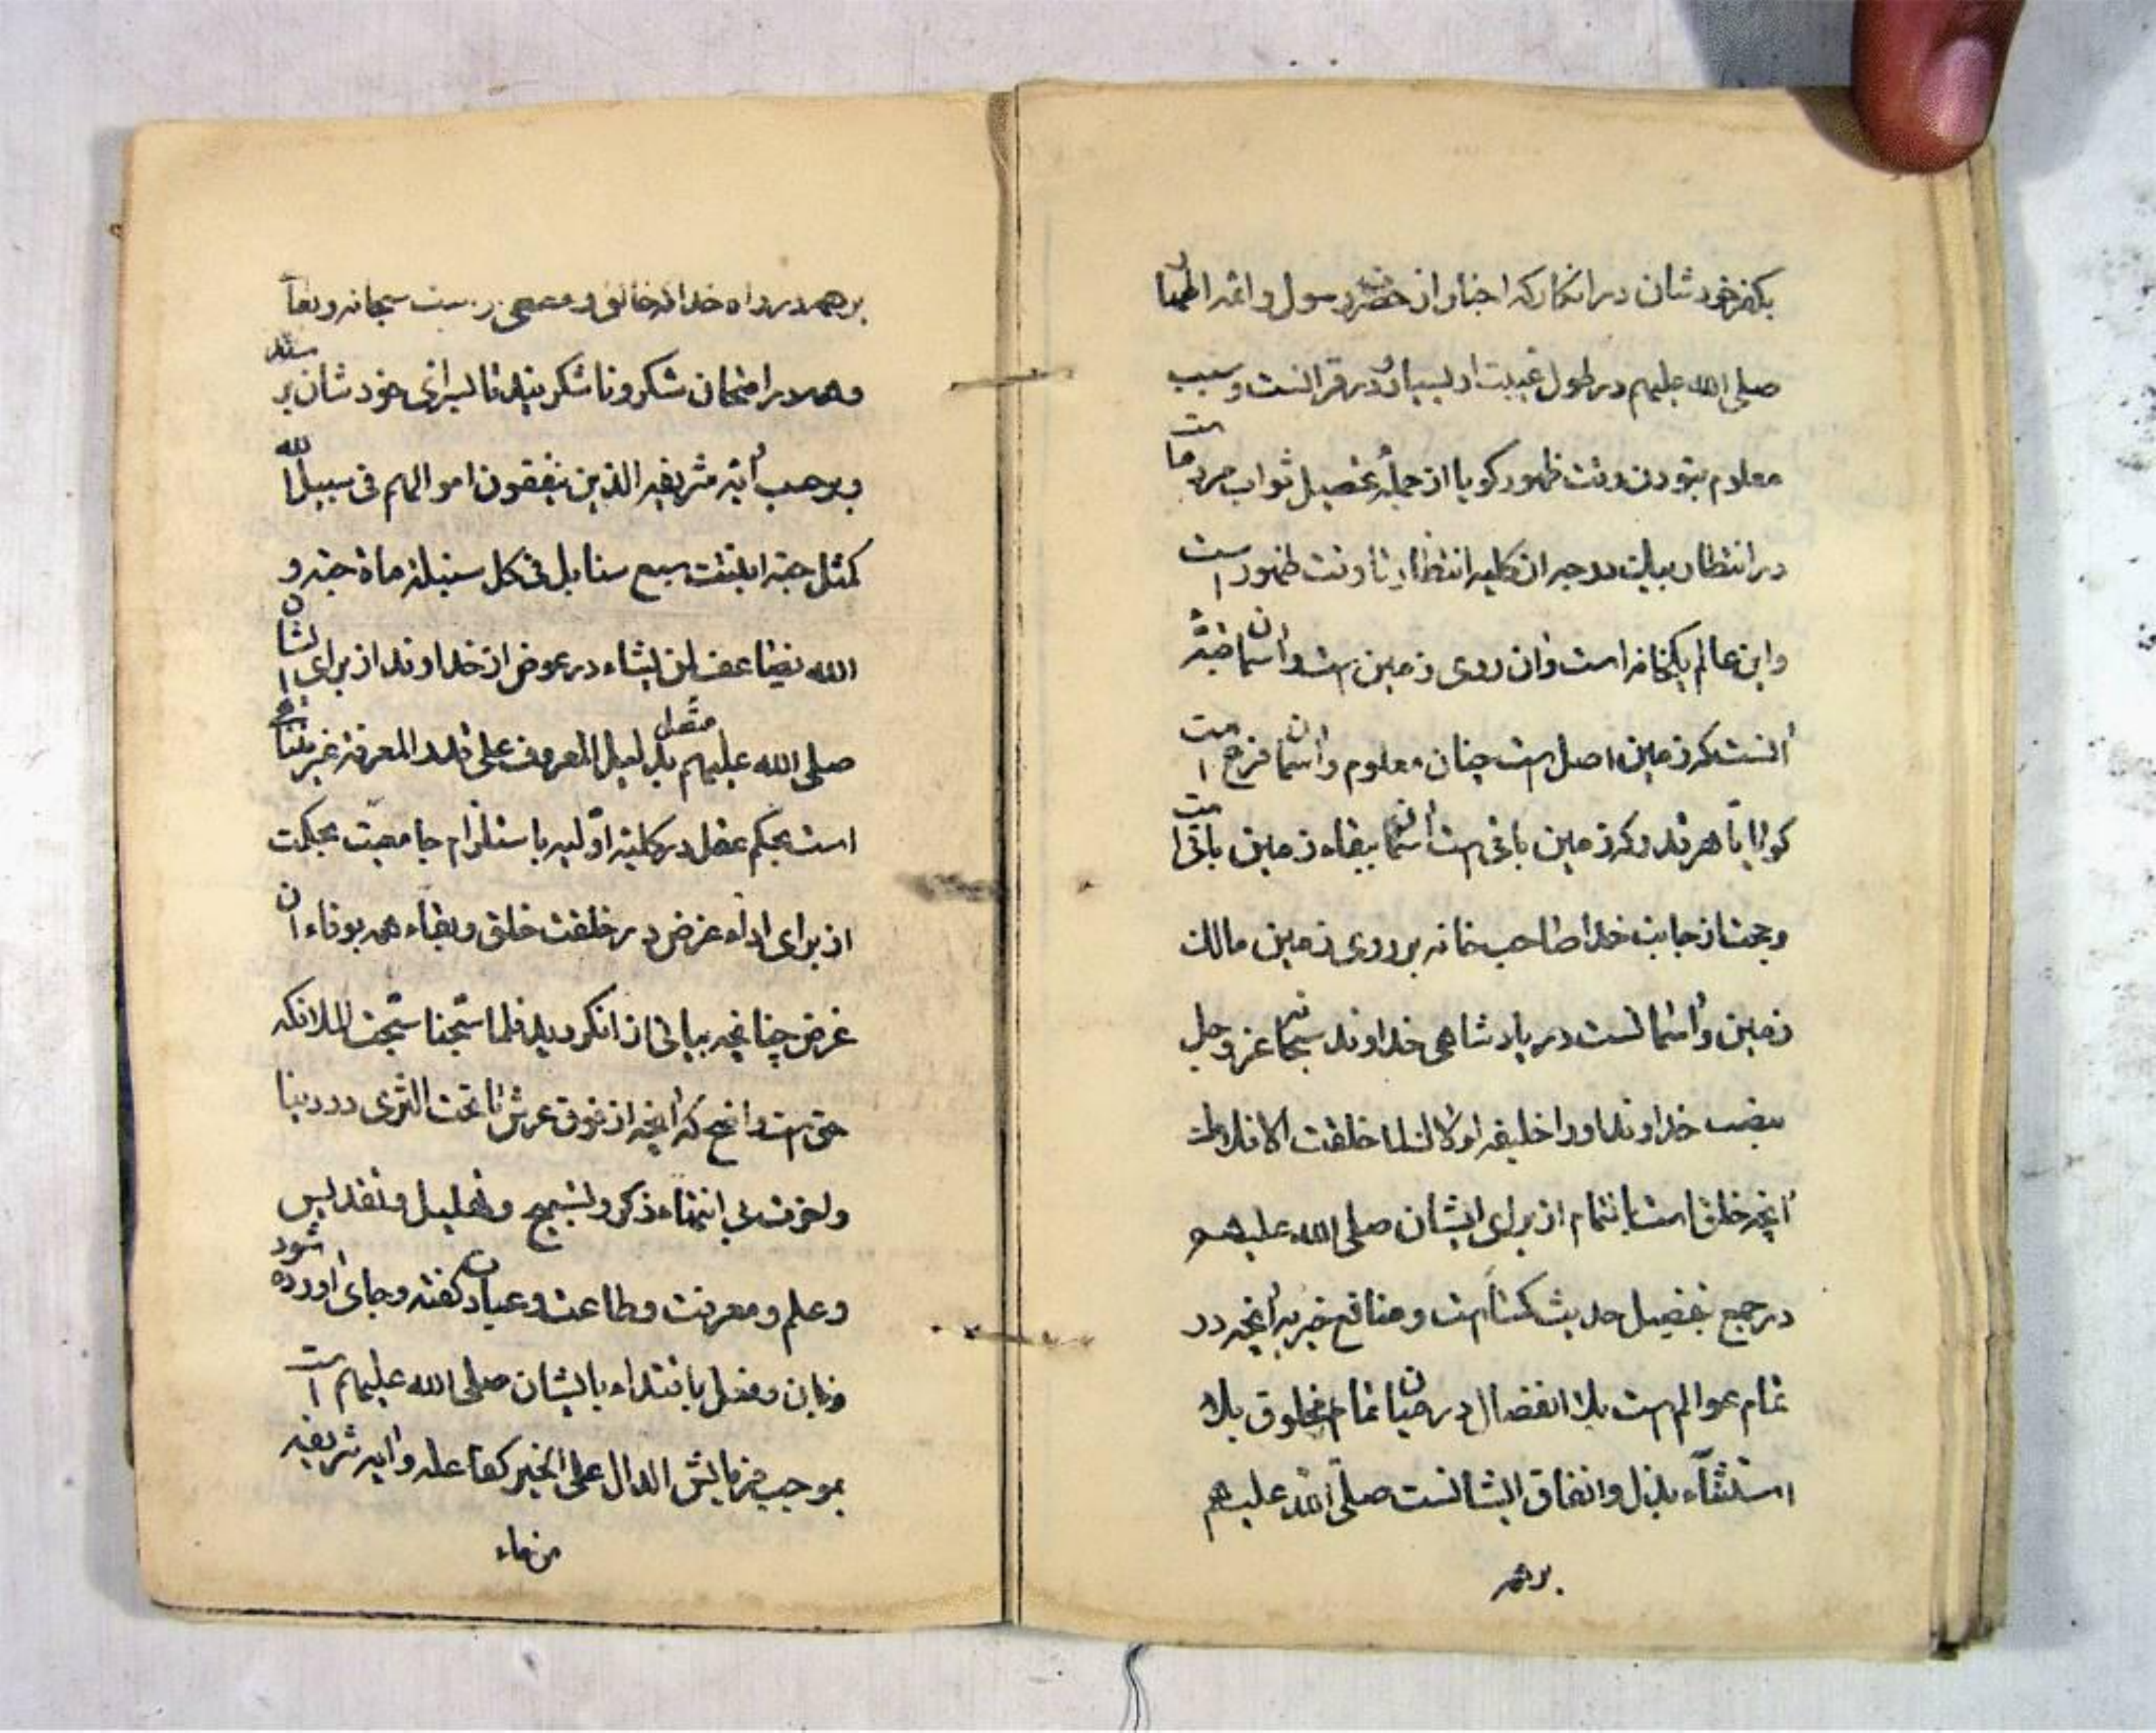 بکفر خودشان در انکار که اخبار از حضرت رسول و ائمه اطهار
صلی الله علیهم در طول غیبت او بسیار و در قرانست و سبب
معلوم نبودن وقت ظهور کویا از جمله تحصیل ثواب مردمانست
در انتظار انتظار تا وقت ظهور است
و این عالم یکخانه است و آن روی زمین است و آسمان
آنست که زمین اصل است چنان معلوم و آسمان فرع است
کواا تا هر قدر که زمین باقی است آسمان ببقاء زمین باقی است
و حجت از جانب خدا صاحب خانه بر روی زمین مالک
زمین و آسمانست در پادشاهی خداوند سبحانه عز و جل
بنصب خداوند او را خلیفه لولاک لما خلقت الافلاک
آنچه خلق است بالتمام از برای ایشان صلی الله علیهم
در جمیع تفصیل حدیث کسا است و منافع خیریه آنچه در
تمام عوالم است بلا انفصال در میان تمام مخلوق بلا
استثناء بذل و انفاق ایشانست صلی الله علیهم
بر همه
بر همه در راه خدا که خالق و معطی سبحانه و تعالی
و همه در امتحان شکر و ناشکریند تا بسزای خودشان برسند
و بموجب آیه شریفه الذین ینفقون اموالهم فی سبیل الله
کمثل حبة انبتت سبع سنابل فی کل سنبلة ماة حبة و
الله یضاعف لمن یشاء در عوض از خداوند از برای ایشان
صلی الله علیهم بدلیل المعروف علی قدر المعرفة غیر متناهی
است بحکم عقل در کلیه اولیه باستلزام جامعیت بحکمت
از برای اداء غرض در خلقت خلق و بقاء همه بوفاء آن
غرض چنانچه بیانی از آن کردید فلما سبحنا سبحت الملائکه
حق است واضح که آنچه از فوق عرش تا تحت الثری در دنیا
و اخرت بی انتهاء ذکر و تسبیح و تهلیل و تقدیس
و علم و معرفت و طاعت و عبادت کفته و بجای آورده شود
بایشان صلی الله علیهم است
بموجب فرمایش الدال علی الخیر کفاعله و آیه شریفه
من جاء